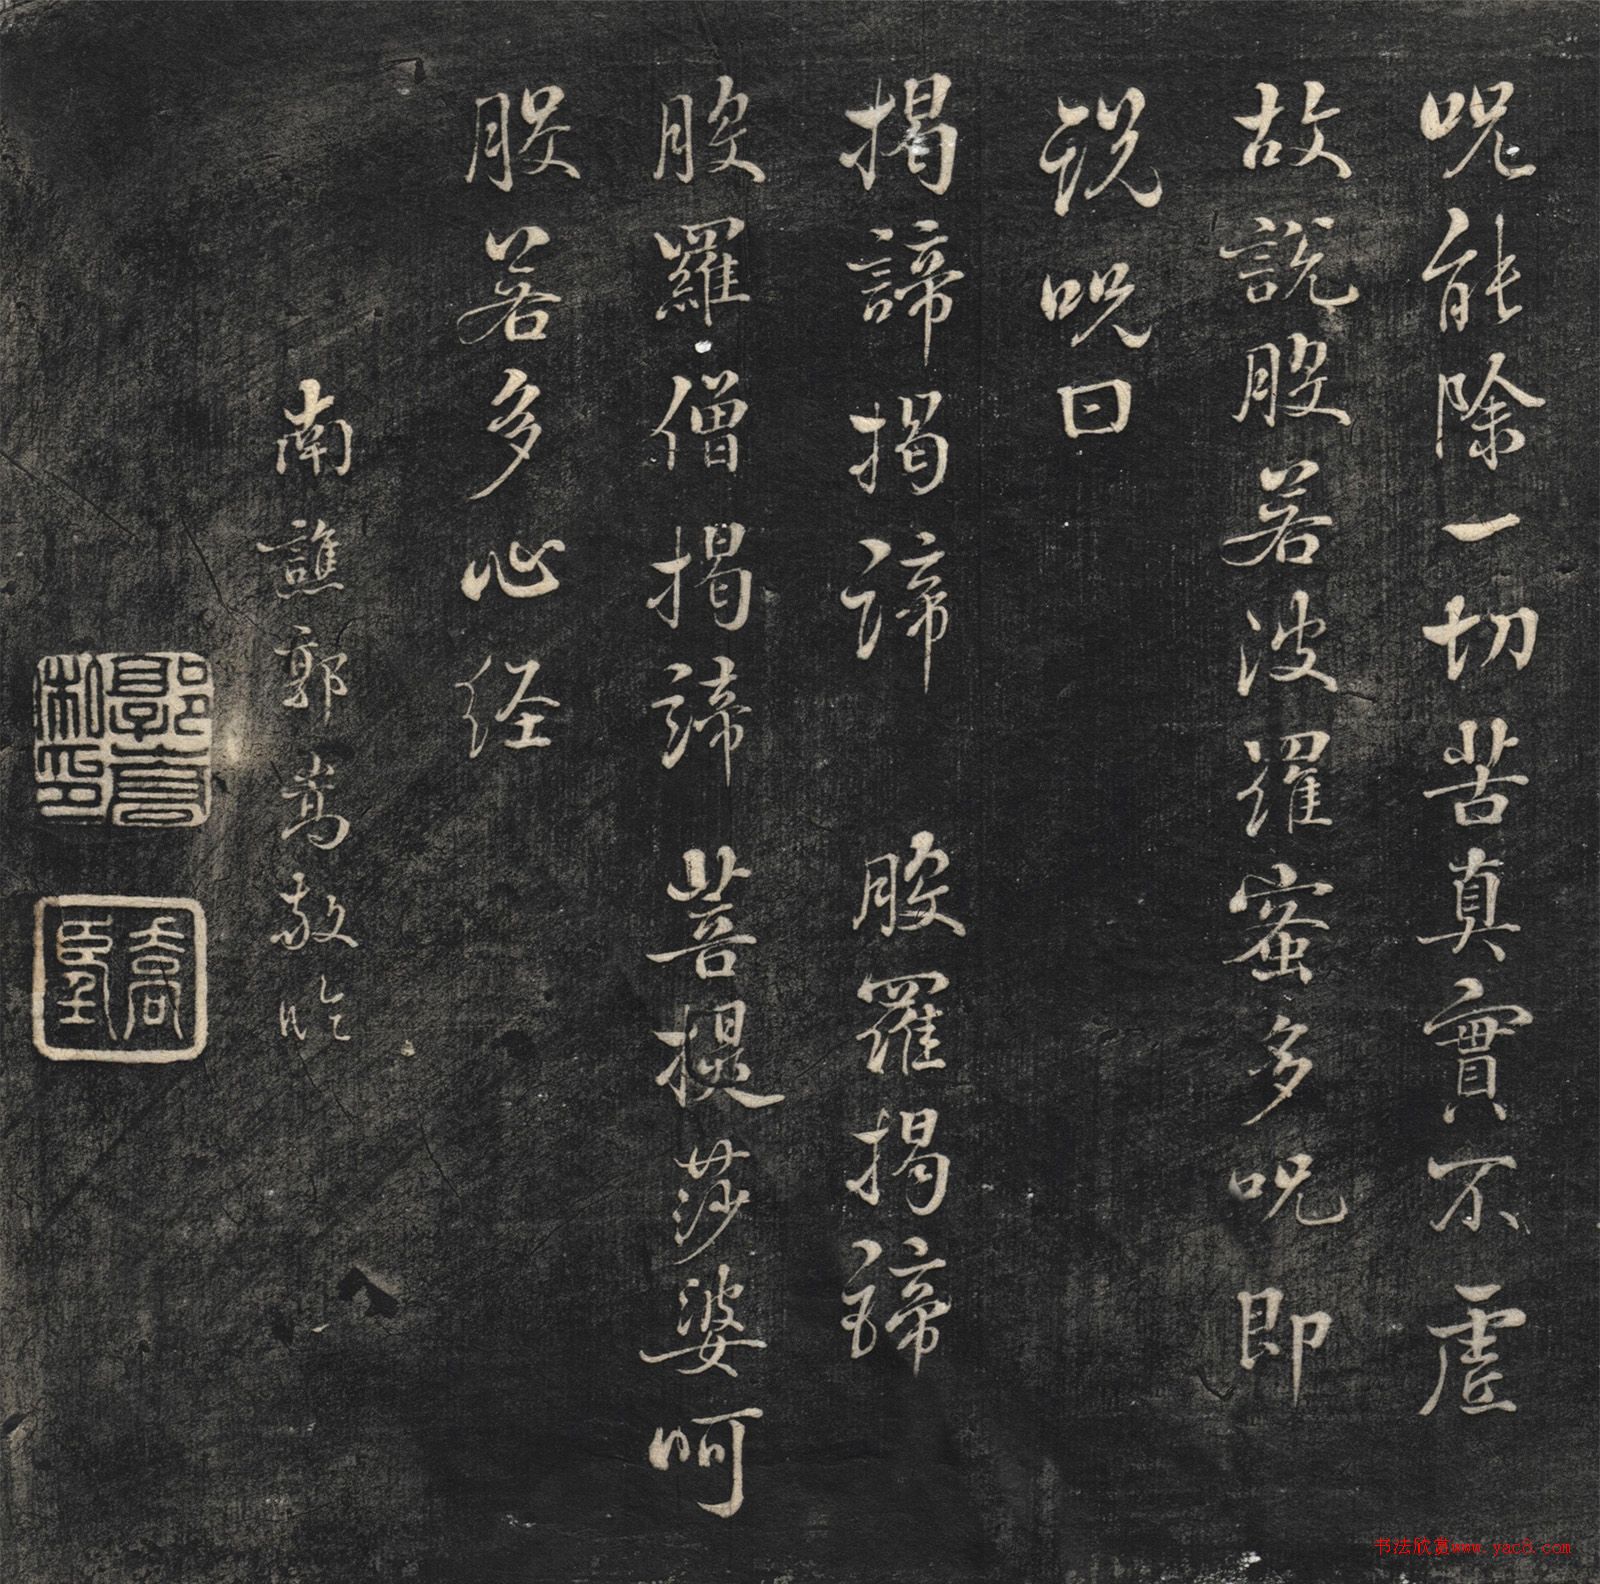 呪能除一切苦真實不虛
故說般若波羅蜜多呪即
說呪曰
揭諦揭諦 般羅揭諦
般羅僧揭諦 菩提莎婆呵
般若多心経
南譙郭嵩敬臨
书法欣赏www.yac8.com